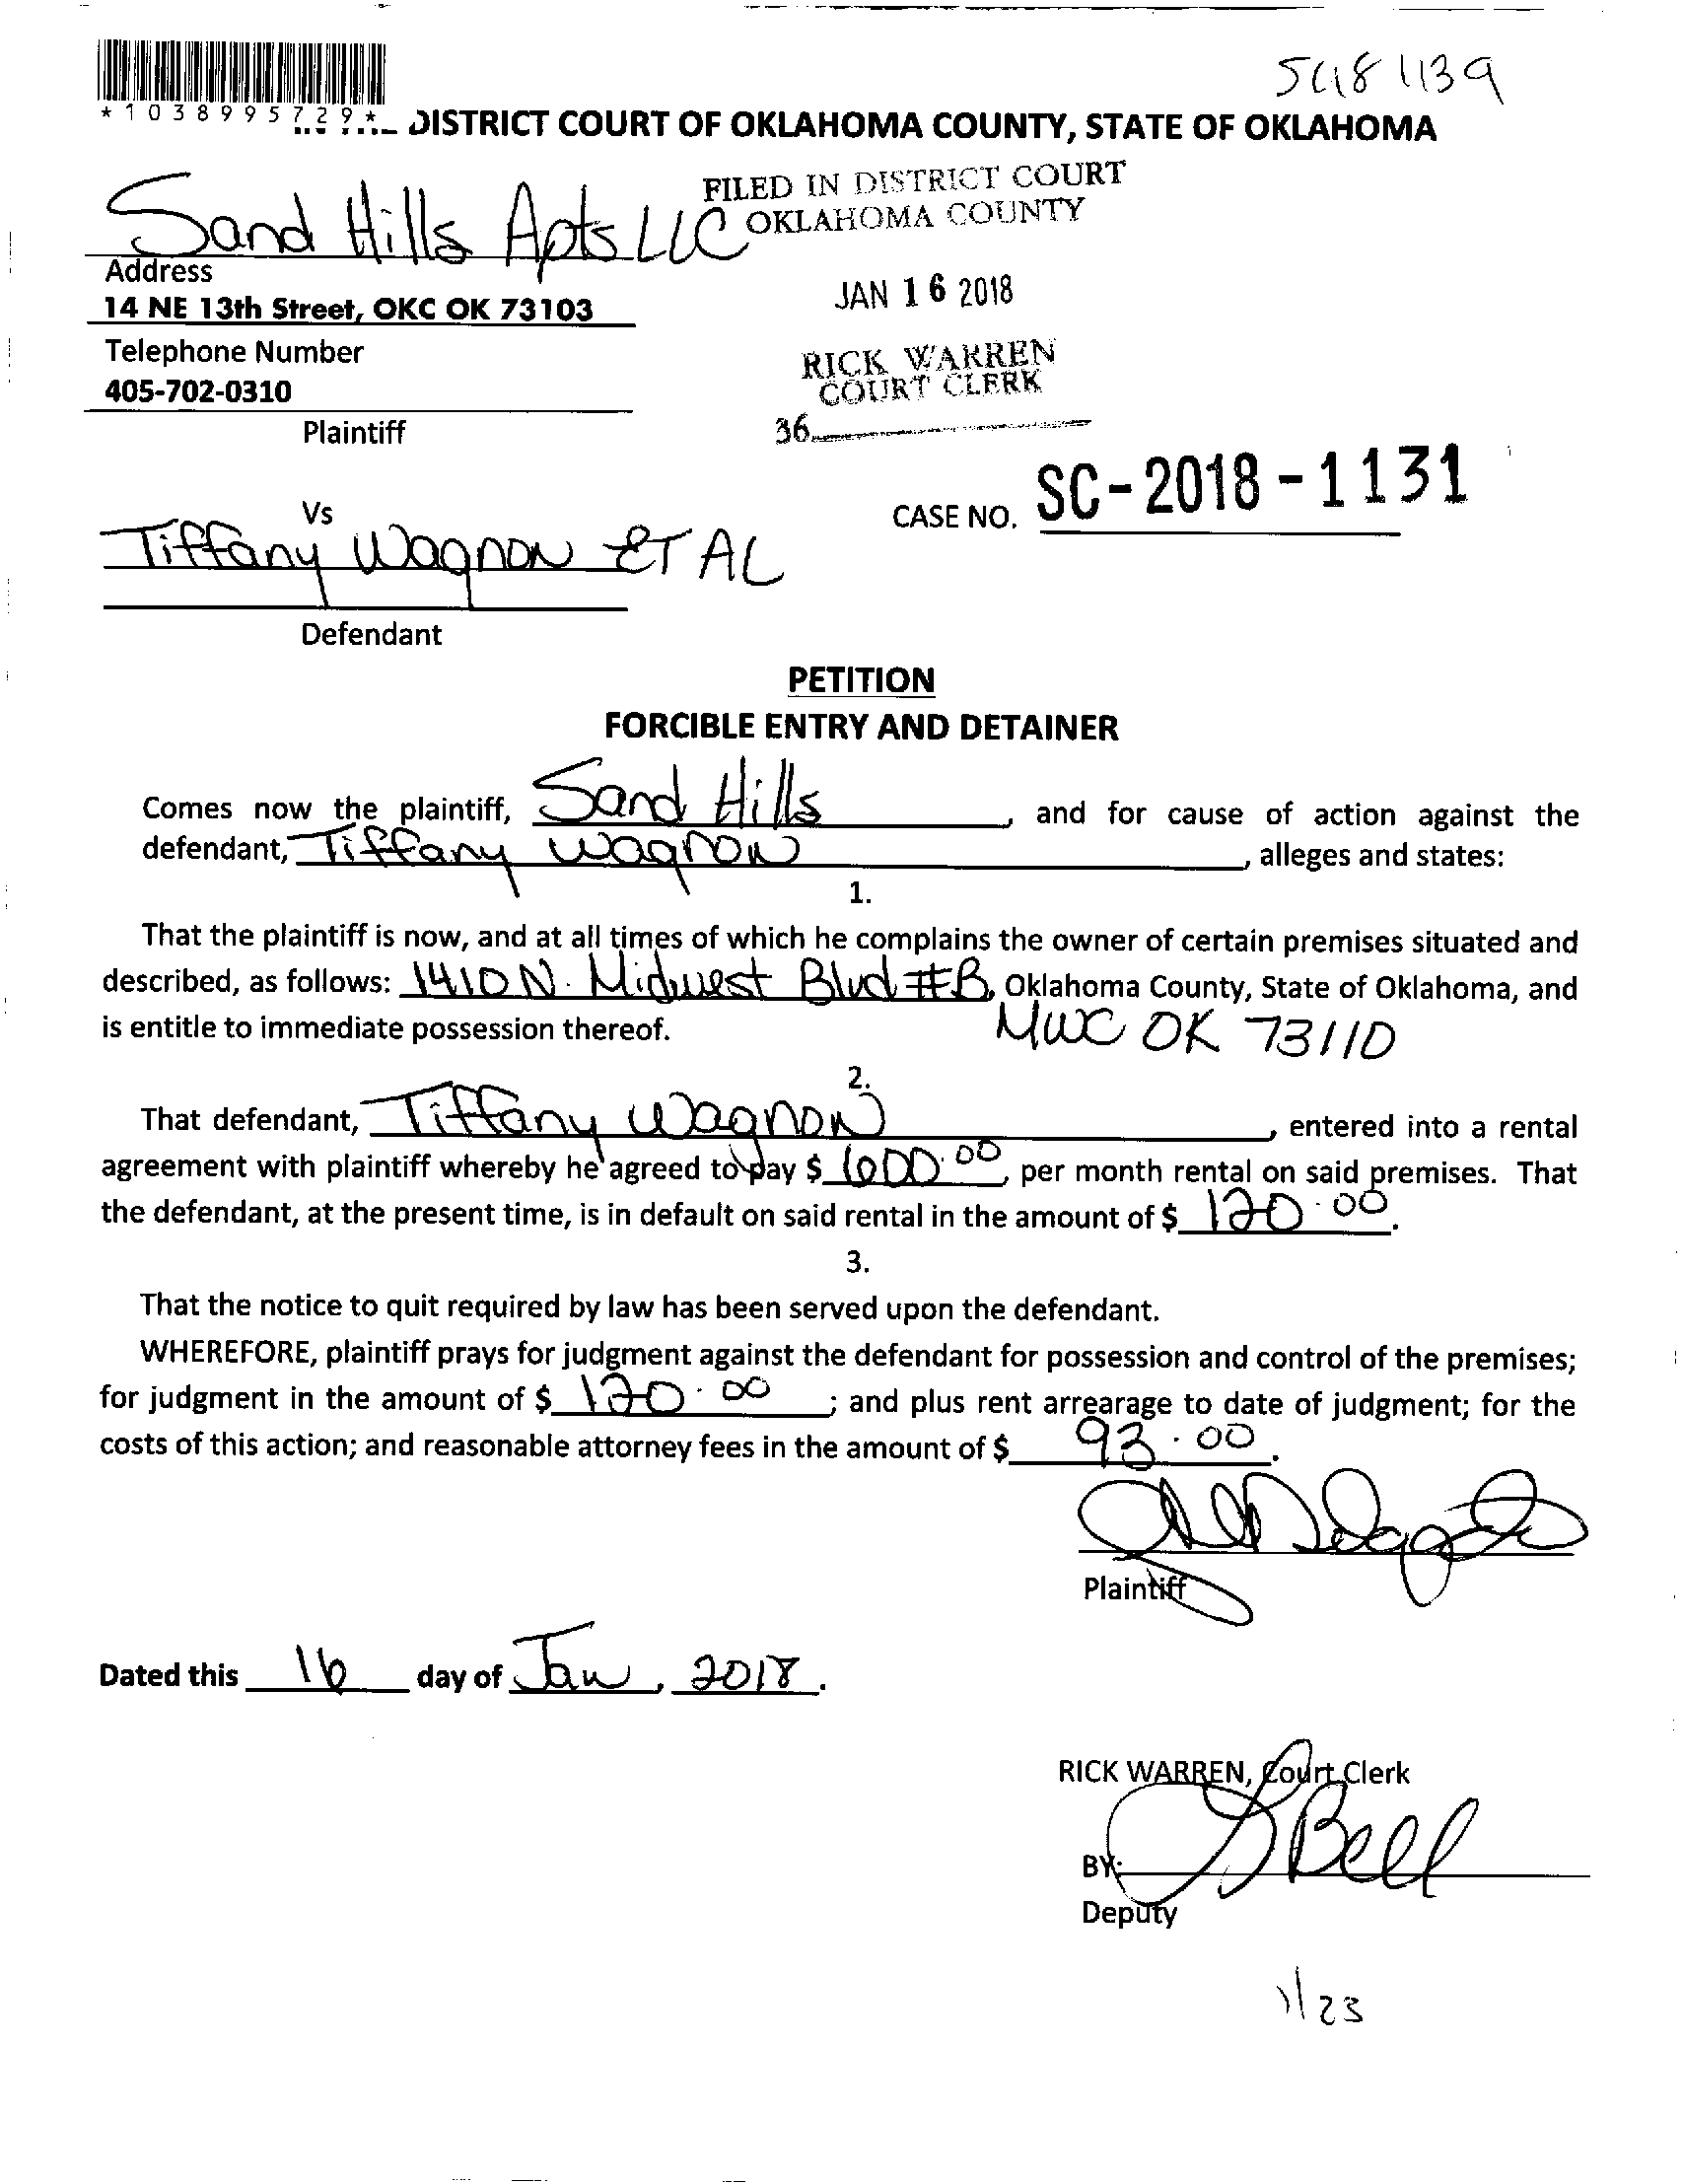 SC18 1139
*1038995729*
DISTRICT COURT OF OKLAHOMA COUNTY, STATE OF OKLAHOMA
FILED IN DISTRICT COURT
OKLAHOMA COUNTY
Sand Hills Apts LLC
Address
14 NE 13th Street, OKC OK 73103
JAN 16 2018
Telephone Number
RICK WARREN
COURT CLERK
405-702-0310
Plaintiff
36
CASE NO. SC-2018-1131
Vs
Tiffany Wagnon ET AL
Defendant
PETITION
FORCIBLE ENTRY AND DETAINER
Comes now the plaintiff, Sand Hills, and for cause of action against the
defendant, Tiffany Wagnon, alleges and states:
1.
That the plaintiff is now, and at all times of which he complains the owner of certain premises situated and
described, as follows: 1410 N. Midwest Blvd #B, Oklahoma County, State of Oklahoma, and
is entitle to immediate possession thereof. MWC OK 73110
2.
That defendant, Tiffany Wagnon, entered into a rental
agreement with plaintiff whereby he agreed to pay $ 600.00, per month rental on said premises. That
the defendant, at the present time, is in default on said rental in the amount of $ 120.00.
3.
That the notice to quit required by law has been served upon the defendant.
WHEREFORE, plaintiff prays for judgment against the defendant for possession and control of the premises;
for judgment in the amount of $ 120.00; and plus rent arrearage to date of judgment; for the
costs of this action; and reasonable attorney fees in the amount of $ 93.00.
Plaintiff
Dated this 16 day of Jan, 2018.
RICK WARREN, Court Clerk
BY: Bell
Deputy
1/23